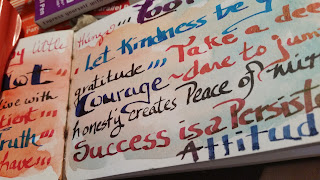 little things
Let Kindness be y
gratitude,,, Take a dee
Courage ~ dare to jum
honesty creates Peace of
Success is a Persiste
Attitud
live with
Truth
have...